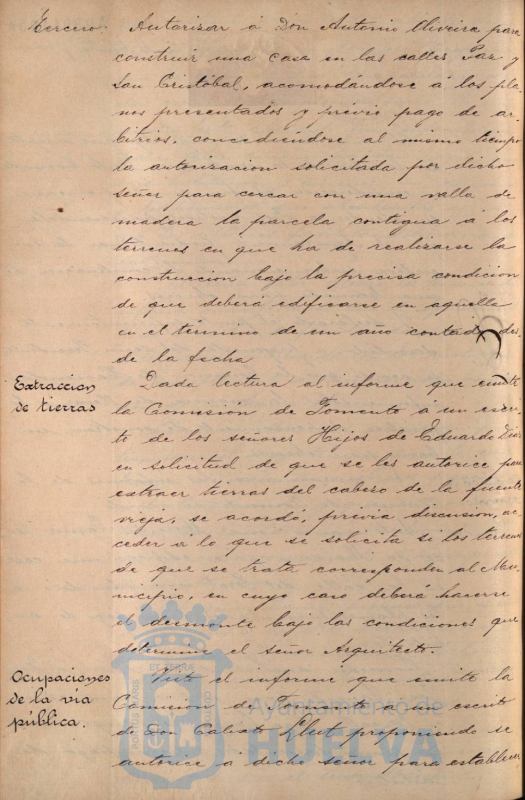 Tercero. Autorizar á Don Antonio Oliveira para
construir una casa en las calles Paz y
San Cristóbal, acomodándose á los pla-
nos presentados y prévio pago de ar-
bitrios, concediéndose al mismo tiempo
la autorizacion solicitada por dicho
señor para cercar con una valla de
madera la parcela contigua á los
terrenos en que ha de realizarse la
construccion bajo la precisa condicion
de que deberá edificarse en aquella
en el término de un año contado des-
de la fecha
Extraccion
de tierras
Dada lectura al informe que emite
la Comisión de Fomento á un escri-
to de los señores Hijos de Eduardo Diaz
en solicitud de que se les autorice para
extraer tierras del cabezo de la fuente
vieja, se acordó, prévia discusion, ac-
ceder á lo que se solicita si los terrenos
de que se trata corresponden al Mu-
nicipio, en cuyo caso deberá hacerse
el desmonte bajo las condiciones que
determine el señor Arquitecto.
Ocupaciones
de la vía
pública.
Visto el informe que emite la
Comision de Fomento á un escrito
de Don Calixto proponiendo se
autorice á dicho señor para establecer
Ayuntamiento de
HUELVA